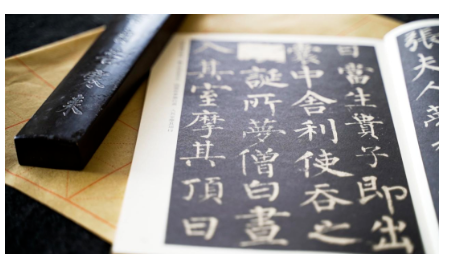 張夫人夢
曰當生貴子即出
囊中舍利使吞之
誕所夢僧白晝
入其室摩其頂曰